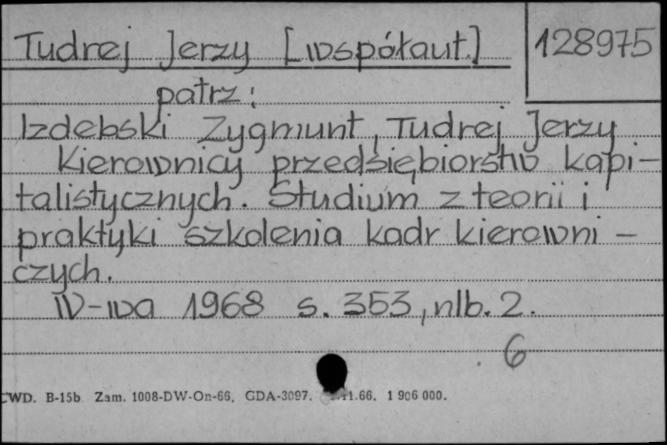 Tudrej Jerzy [współaut.]
128975
patrz:
Izdebski Zygmunt, Tudrej Jerzy
Kierownicy przedsiębiorstw kapi-
talistycznych. Studium z teorii i
praktyki szkolenia kadr kierowni-
czych.
W-wa 1968 s. 353, nlb. 2.
6
CWD. B-15b Zam. 1008-DW-On-66. GDA-3097. 11.66. 1 906 000.